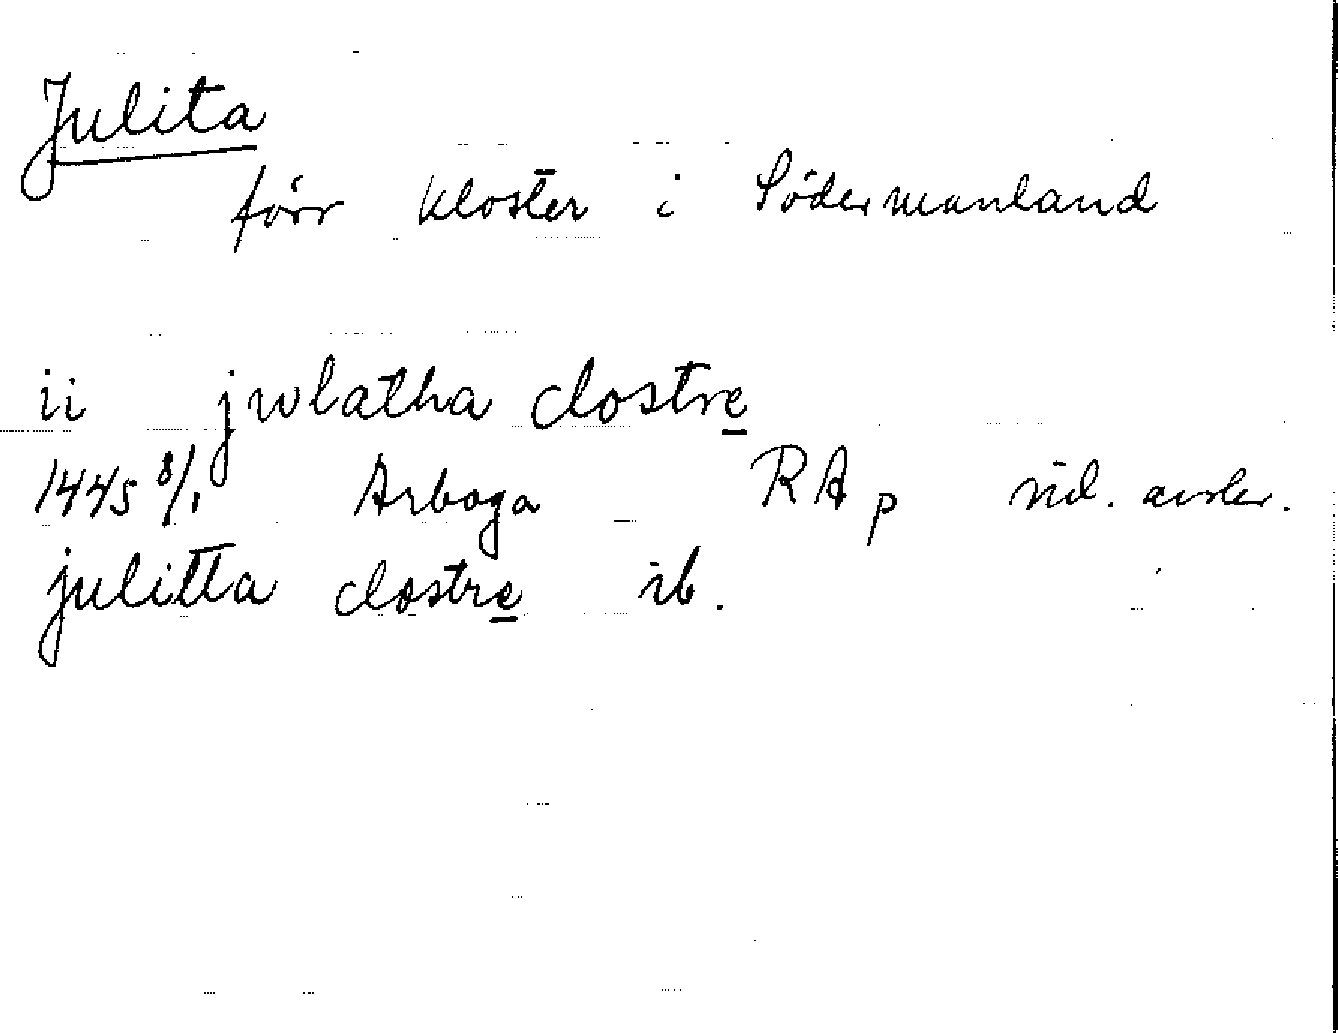 Julita
förr kloster i Södermanland
ii jwlatha clostre
1445 8/1 Arboga RAp vid. avskr.
julitta clostre ib.